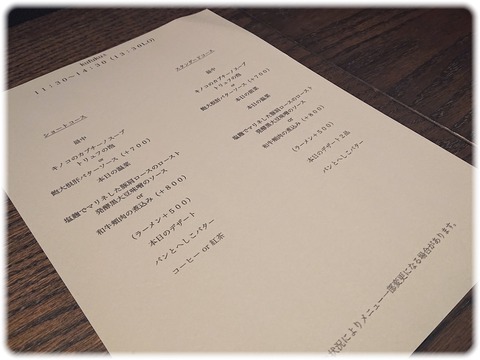 11:30~14:30(13:30LO)
ショートコース
最中
キノコのカプチーノスープ
トリュフの泡
or
鮑大根肝バターソース(+700)
本日の温菜
塩麹でマリネした豚肩ロースのロースト
発酵黒大豆味噌のソース
or
和牛頬肉の煮込み(+800)
(ラーメン+500)
本日のデザート
パンとへしこバター
コーヒー or 紅茶
スタンダードコース
最中
キノコのカプチーノスープ
トリュフの泡
or
鮑大根肝バターソース(+700)
本日の温菜
本日の
塩麹でマリネした豚肩ロースのロースト
発酵黒大豆味噌のソース
or
和牛頬肉の煮込み(+800)
(ラーメン+500)
本日のデザート2品
パンとへしこバター
状況によりメニュー一部変更になる場合があります。